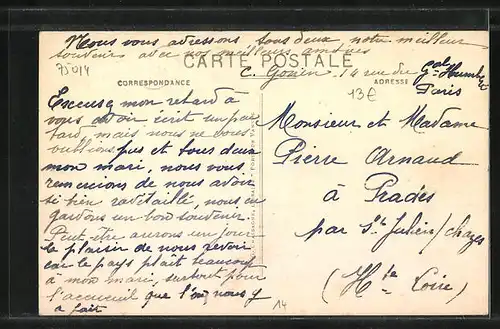 Nous vous adressons tous deux notre meilleur
souvenir avec nos meilleurs amitiés
CARTE POSTALE
75014
C. Gouien 14 rue du Gal
G. Humbert
CORRESPONDANCE
ADRESSE
13€
Paris
Excusez mon retard à
vous avoir écrit un peu
tard, mais nous ne vous
oublions pas et tous deux
mon mari, nous vous
remercions de nous avoir
si bien ravitaillé, nous en
gardons un bon souvenir
Peut-être aurons un jour
le plaisir de nous revoir
car le pays plaît beaucoup
à mon mari, surtout pour
l'accueuil que l'on nous y
a fait
Monsieur et Madame
Pierre Arnaud
à Prades
par St Julien/chazes
(Hte Loire)
14